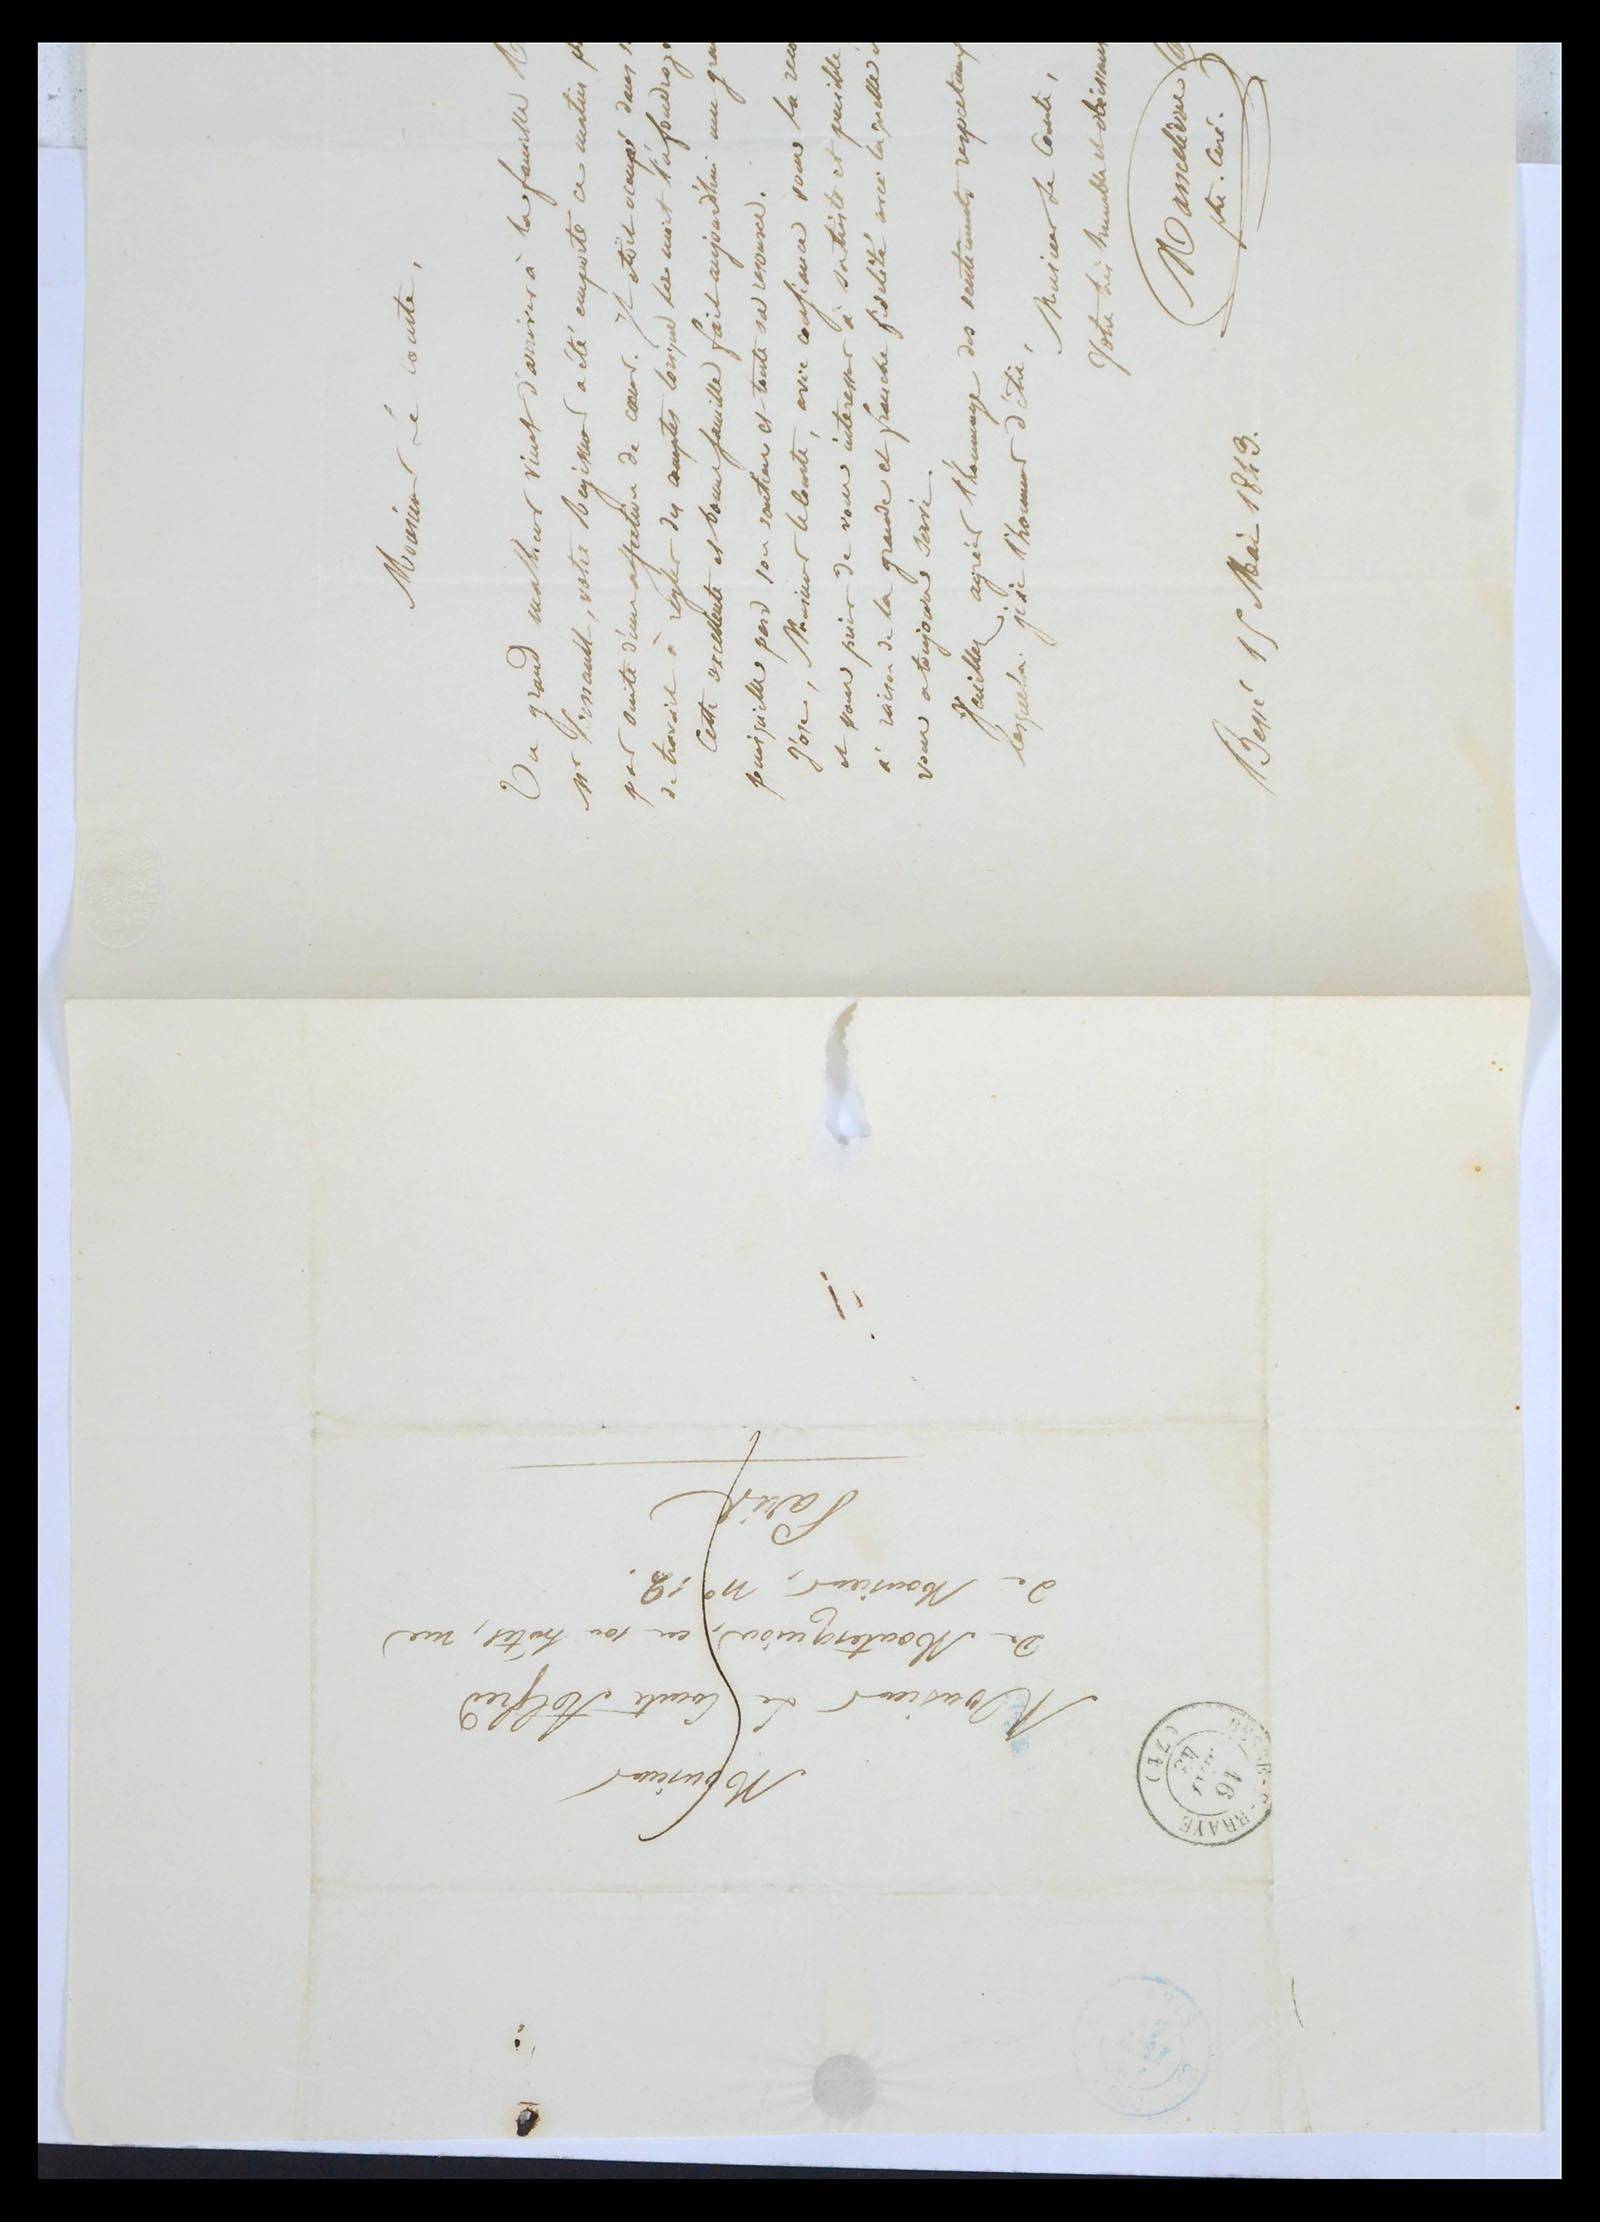 Monsieur le comte,
Un grand malheur vient d'arriver à la famille
Mr Renault, votre Régisseur a été emporté ce matin
par suite d'une affection de coeur. Il étoit occupé dans
de travail à régler des comptes lorsque la mort l'a
Cette excellente et bonne famille fait aujourd'hui une
puisqu'elle perd son soutien et toute sa ressource.
J'ose, Monsieur le Comte, avec confiance vous la
et vous prier de vous intéresser à sa triste et pénible
à raison de la grande et franche fidélité avec laquelle
vous a toujours servi.
Veuillez agréer l'hommage des sentiments respectueux
lesquels j'ai l'honneur d'être,
Monsieur le Comte,
Votre très humble et obéissant
ptre. Curé.
Bessé 15 Mai 1843.
Monsieur
Monsieur Le Comte Alfred
De Montesquiou, en son hôtel, rue
de Monsieur, n° 12.
Paris
BRAYE
16
MAI
(71)